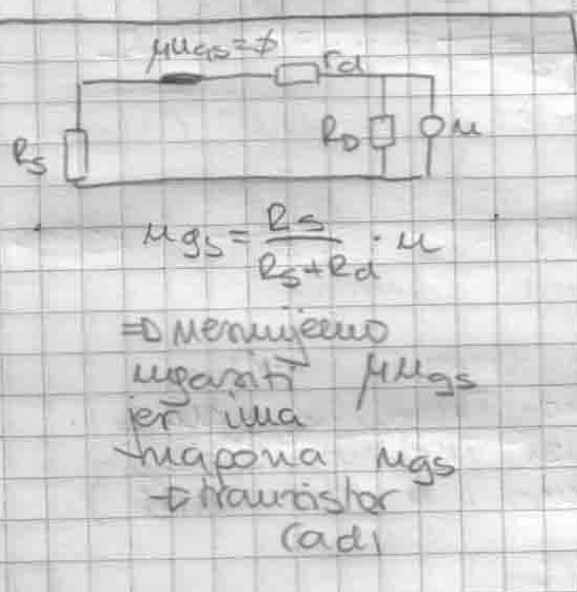 μu_gs=∅
r_d
R_D
u
R_S
u_gs = R_S / (R_S + R_d) · u
⇒ ne smijemo
ugasiti μu_gs
jer ima
napona u_gs
→ tranzistor
radi